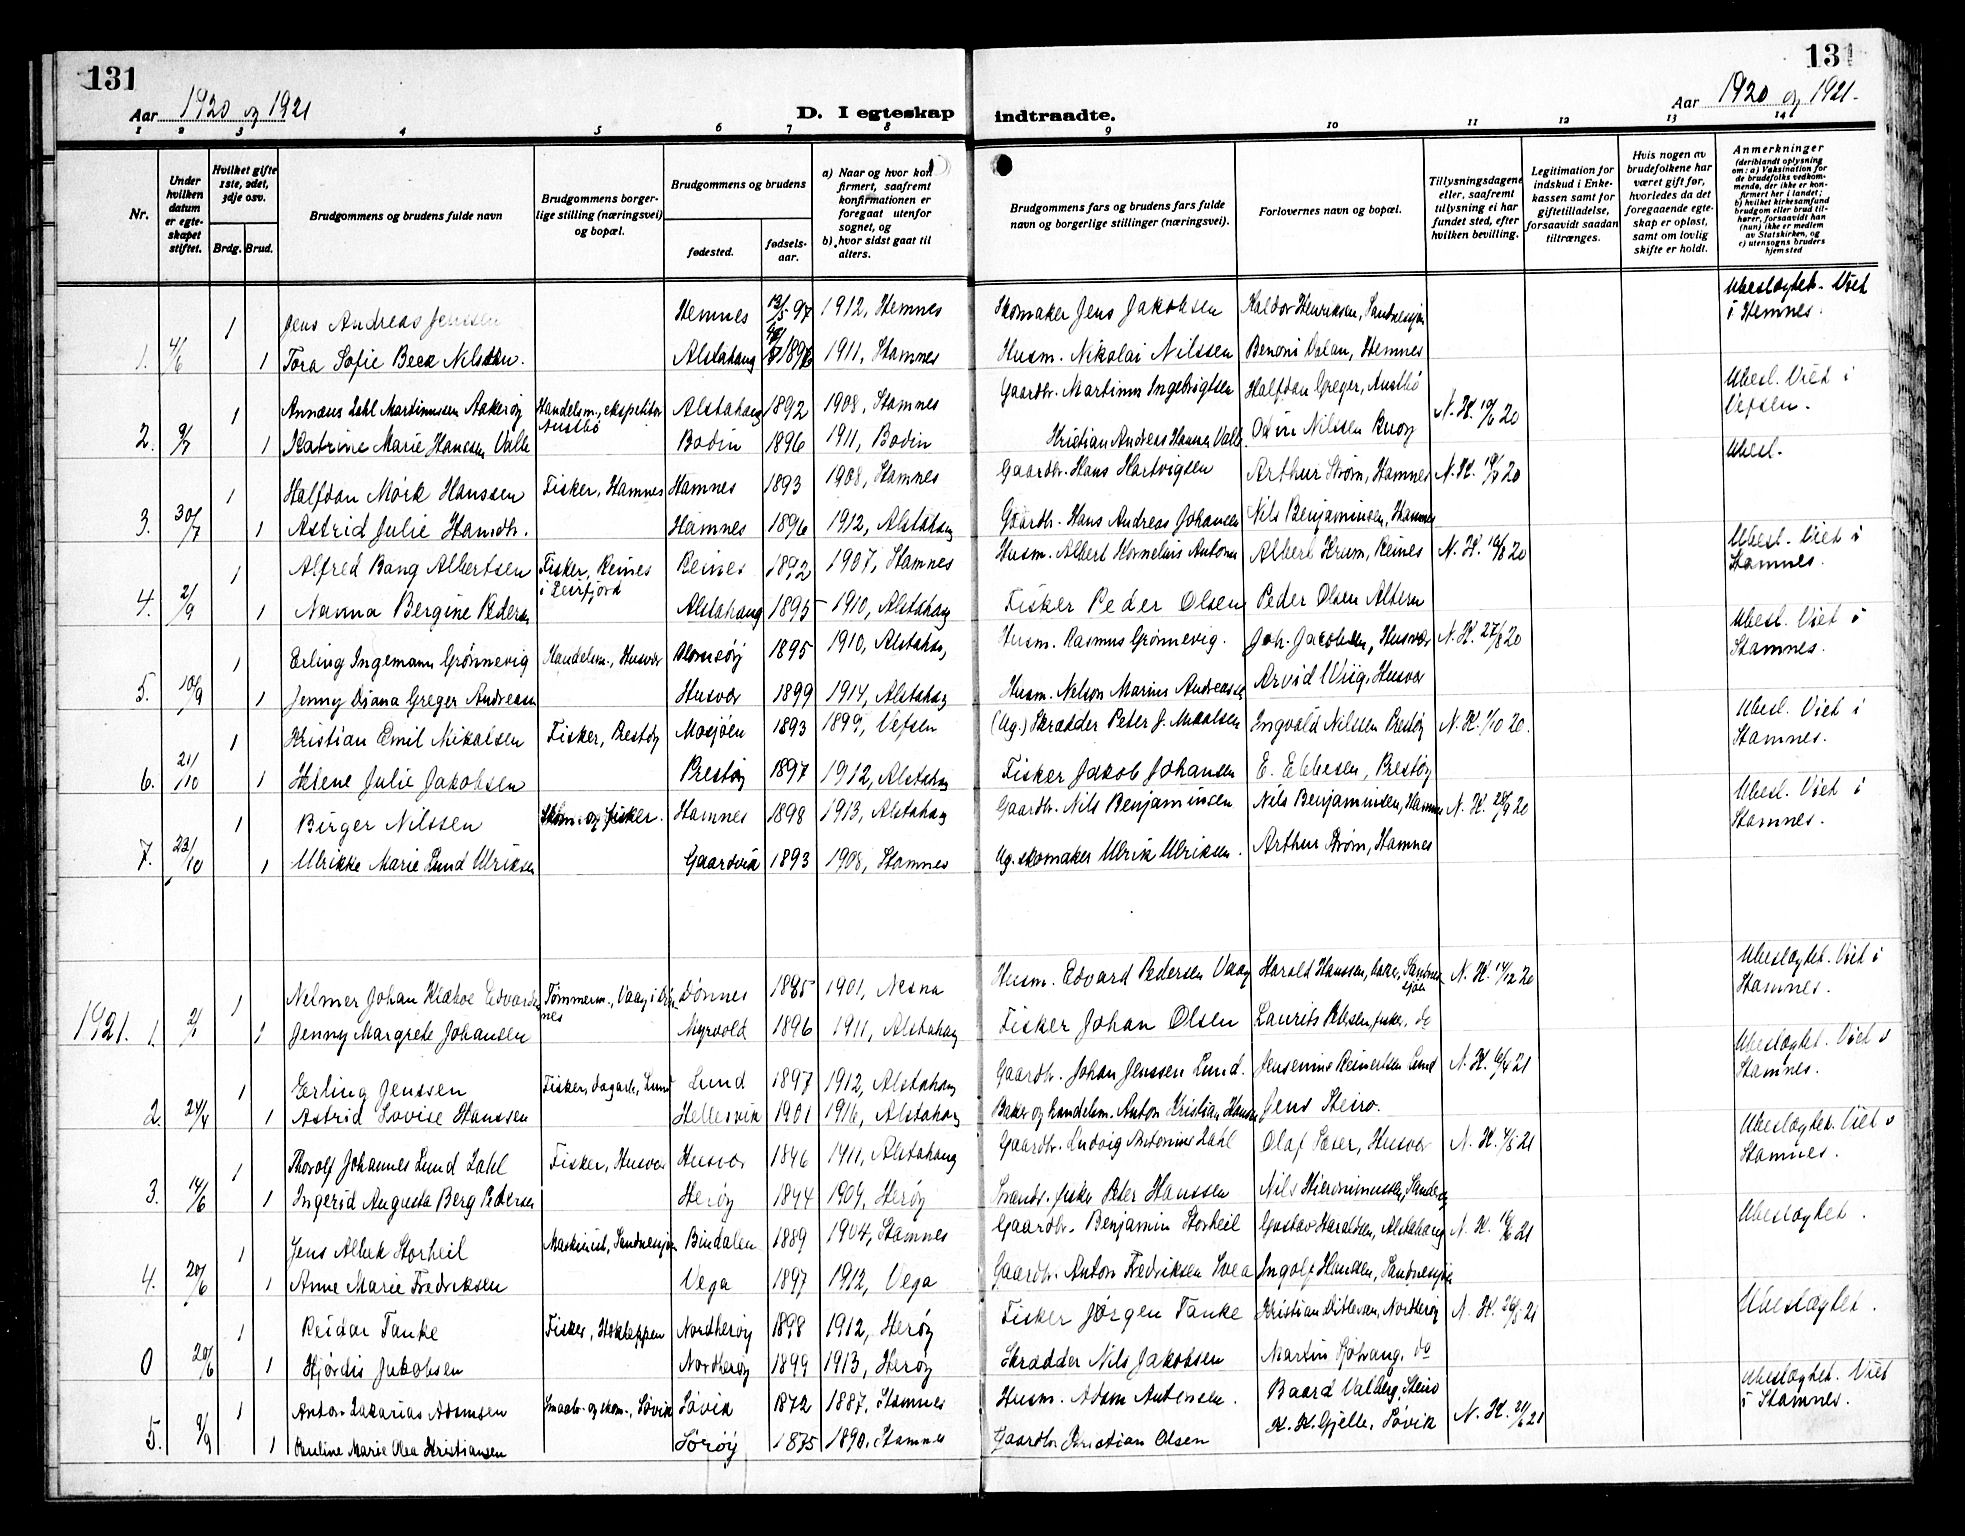 131
131
Aar 1920 og 1921
D. I egteskap
indtraadte.
Aar 1920 og 1921.
1 2 3 4 5 6 7 8 9 10 11 12 13 14
Nr.
Under hvilken datum er egteskapet stiftet.
Hvilket gifte 1ste, 2det, 3dje osv.
Brdg. Brud.
Brudgommens og brudens fulde navn
Brudgommens borgerlige stilling (næringsvei) og bopæl.
Brudgommens og brudens
fødested.
fødselsaar.
a) Naar og hvor konfirmert, saafremt konfirmationen er foregaat utenfor sognet, og
b) hvor sidst gaat til alters.
Brudgommens fars og brudens fars fulde navn og borgerlige stillinger (næringsvei).
Forlovernes navn og bopæl.
Tillysningsdagene eller, saafremt tillysning ei har fundet sted, efter hvilken bevilling.
Legitimation for indskud i Enkekassen samt for giftetilladelse, forsaavidt saadan tiltrænges.
Hvis nogen av brudefolkene har været gift før, hvorledes da det foregaaende egteskap er opløst, samt om lovlig skifte er holdt.
Anmerkninger
(deriblandt oplysning om: a) Vaksination for de brudefolks vedkommende, der ikke er konfirmert her i landet; b) hvilket kirkesamfund brudgom eller brud tilhører, forsaavidt han (hun) ikke er medlem av Statskirken, og c) utensogns bruders hjemsted
1 Jens Andreas Jenssen Hemnes 13/5 97 1912, Hemnes Skomaker Jens Jakobsen Haldor Henriksen, Sandnessjøen Ubeslægtet. Viet i Hemnes.
1. 4/6 1 Tora Sofie Beck Nilssen. Alstahaug 1911, Stamnes Husm. Nikolai Nilssen Benoni Dalan, Hemnes
1 Annæus Dahl Martinussen Aakerøy Handelsm., ekspeditør Austbø Alstahaug 1892 1908, Stamnes Gaardbr. Martinus Ingebrigtsen Halfdan Greger, Austbø N. K. 19/6 20 Ubesl. Viet i Vefsen.
2. 9/7 1 Katrine Marie Hanssen Valle Bodin 1896 1911, Bodin Kristian Andreas Hanssen Valle Odin Nilssen
1 Halfdan Mørk Hanssen Fisker, Hamnes Hamnes 1893 1908, Stamnes Gaardbr. Hans Hartvigsen Arthur Strøm, Hamnes N. K. 19/7 20 Ubesl.
3. 30/7 1 Astrid Julie Hansdtr. Hamnes 1896 1912, Alstahaug Gaardbr. Hans Andreas Johansen Nils Benjaminsen, Hamnes
1 Alfred Bang Albertsen Fisker, Reines i Leirfjord Reines 1892 1907, Stamnes Husm. Albert Kornelius Antonsen Albert Krum, Reines N. K. 19/8 20 Ubesl. Viet i Stamnes.
4. 2/9 1 Nanna Bergine Pedersen Alstahaug 1895 1910, Alstahaug Fisker Peder Olsen Peder Olsen Alteren
1 Erling Ingemann Grønnevig Handelsm., Husvær 1895 1910, Alstahaug Husm. Rasmus Grønnevig. Joh. Jacobsen, Husvær N. K. 27/8 20 Ubesl. Viet i Stamnes.
5. 10/9 1 Jenny Diana Greger Andreassen Husvær 1899 1914, Alstahaug Husm. Nelson Marius Andreassen Arvid Wiig, Husvær
1 Kristian Emil Nikolsen Fisker, Prestøy Mosjøen 1893 1899, Vefsen (Ug.) Skrædder Peter J. Ingvald Nilssen Prestøy N. K. 1/10 20. Ubesl. Viet i Stamnes.
6. 21/10 1 Helene Julie Jakobsen Prestøy 1897 1912, Alstahaug Fisker Jakob Johansen E. Ebbesen, Prestøy
1 Birger Nilssen Skom. og fisker. Hamnes 1898 1913, Alstahaug Gaardbr. Nils Benjaminsen Nils Benjaminsen, Hamnes N. K. 28/9 20 Ubesl. Viet i Stamnes.
7. 23/10 1 Ulrikke Marie Lund Ulriksen Gaardvik 1893 1908, Stamnes Ug. skomaker Ulrik Ulriksen. Arthur Strøm, Hamnes
1 Nelmer Johan Klæboe Edvardsen Tømmerm., Vaag i Dønnes Dønnes 1885 1901, Nesna Husm. Edvard Pedersen Vaag Harald Hanssen, Sandnessjøen N. K. 14/12 20 Ubeslægtet. Viet i Stamnes.
1921. 1. 2/1 1 Jenny Margrete Johansen Myrvold 1896 1911, Alstahaug Fisker Johan Olsen Laurits fisker, do
1 Erling Jenssen Fisker, dagarb., Lund Lund 1897 1912, Alstahaug Gaardbr. Johan Jenssen Lund. Jensenius Reinertsen Lund N. K. 6/4 21 Ubeslægtet. Viet i Stamnes.
2. 24/4 1 Astrid Lovise Hanssen Hellesvik 1901 1916, Alstahaug Baker og handelsm. Anton Kristian Hansen Jens Steiro.
1 Thorolf Johannes Lund Dahl Fisker, Husvær Husvær 1896 1911, Alstahaug Gaardbr. Ludvig Antonius Dahl Olaf Sører, Husvær N. K. 4/5 21 Ubeslægtet. Viet i Stamnes.
3. 14/6 1 Ingerid Augusta Berg Pedersen Herøy 1894 1909, Herøy fisker Peter Hanssen Nils Hieronimussen,
1 Jens Albek Storheil Maskinist, Sandnessjøen Bindalen 1889 1904, Stamnes Gaardbr. Benjamin Storheil Gustav Haraldsen, Alstahaug N. K. 1/6 21 Ubeslægtet.
4. 20/6 1 Anne Marie Fredriksen Vega 1897 1912, Vega Gaardbr. Anton Fredriksen Svea Ingolf Hansen, Sandnessjøen
1 Reidar Tanke Fisker, Nordherøy 1898 1912, Herøy Fisker Jørgen Tanke Kristian Ditlevsen, Nordherøy N. K. 26/5 21 Ubeslægtet.
0 20/6 1 Hjørdis Jakobsen Nordherøy 1899 1913, Herøy Skrædder Nils Jakobsen Martin do
1 Anton Zakarias Adamsen Smaabr. og skom., Søvik Søvik 1872 1887, Stamnes Husm. Adam Antonsen. Baard Valberg, Steiro N. K. 21/6 21 Ubeslægtet. Viet i Stamnes.
5. 9/9 1 Pauline Marie Olea Kristiansen Sørøy 1875 1890, Stamnes Gaardbr. Kristian Olsen K. K. Gjelle, Søvik